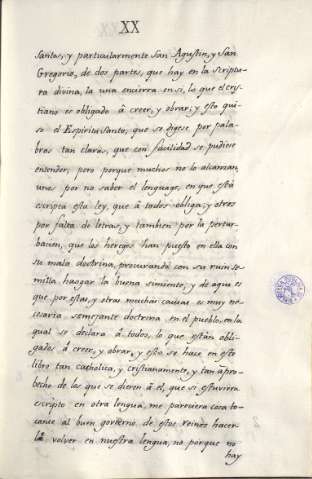 XX
santas, y particularmente San Agustin, y San
Gregorio, de dos partes, que hay en la scriptu-
ra divina, la una encierra en si, lo que el cris-
tiano es obligado à creer, y obrar; y esto qui-
so el Espiritu Santo, que se digese por pala-
bras tan claras, que con facilidad se pudiese
entender, pero porque muchos no lo alcanzan,
unos por no saber el lenguage, en que está
escripta esta ley, que à todos obliga; y otros
por falta de letras, y tambien por la pertur-
bacion, que los hereges han puesto en ella con
su mala doctrina, procurando con su ruin se-
milla, haogar la buena simiente, y de aqui es
que por estas, y otras muchas causas es muy ne-
cesaria semejante doctrina en el pueblo, en la
qual se declara à todos, lo que están obli-
gados à creer, y obrar, y esto se hace en este
libro tan catholica, y cristianamente, y tan à pro-
becho de los que se dieren à él, que si estuviera
escripto en otra lengua, me pareciera cosa to-
cante al buen govierno de estos reinos hacer-
le volver en nuestra lengua, no porque no
hay